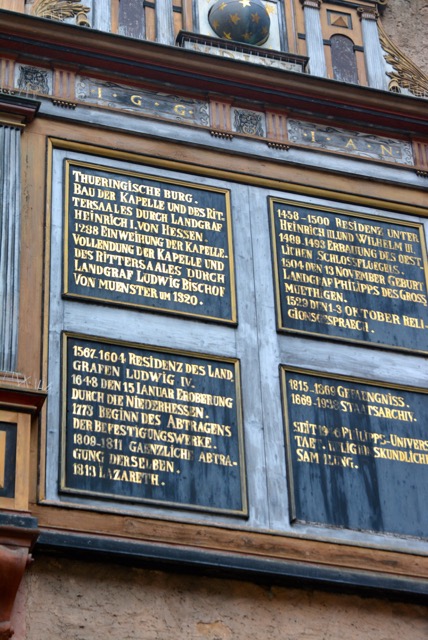 I.G.G.
I.A.N.
THUERINGISCHE BURG.
BAU DER KAPELLE UND DES RIT-
TERSAALES DURCH LANDGRAF
HEINRICH I. VON HESSEN.
1288 EINWEIHUNG DER KAPELLE.
VOLLENDUNG DER KAPELLE UND
DES RITTERSAALES DURCH
LANDGRAF LUDWIG BISCHOF
VON MUENSTER UM 1320.
1458-1500 RESIDENZ UNTER
HEINRICH III. UND WILHELM III.
1489.1493 ERBAUUNG DES OEST-
LICHEN SCHLOSSFLUEGELS.
1504 DEN 13 NOVEMBER GEBURT
LANDGRAF PHILIPPS DES GROSS-
MUETHIGEN.
1529 DEN 1-3 OKTOBER RELI-
GIONSGESPRAECH.
1567.1604 RESIDENZ DES LAND-
GRAFEN LUDWIG IV.
1648 DEN 15 JANUAR EROBERUNG
DURCH DIE NIEDERHESSEN.
1778 BEGINN DES ABTRAGENS
DER BEFESTIGUNGSWERKE.
1809-1811 GAENZLICHE ABTRA-
GUNG DERSELBEN.
1813 LAZARETH.
1815-1869 GEFAENGNISS
STAATSARCHIV.
SEIT PHILIPPS-UNIVERS